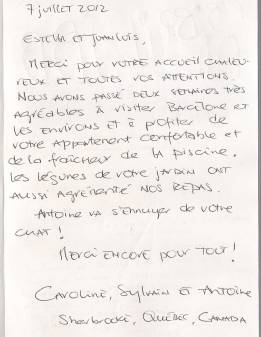 7 juillet 2012
Estella et Juan Luis,
Merci pour votre accueil chaleu-
reux et toutes vos attentions.
Nous avons passé deux semaines très
agréables à visiter Barcelone et
les environs et à profiter de
votre appartement confortable et
de la fraîcheur de la piscine.
Les légumes de votre jardin ont
aussi agrémenté nos repas.
Antoine va s'ennuyer de votre
chat !
Merci encore pour tout !
Caroline, Sylvain et Antoine
Sherbrooke, Québec, Canada